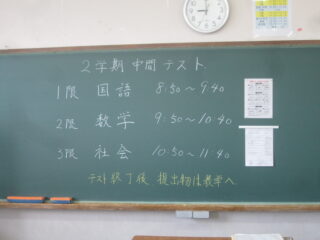 2学期 中間 テスト
1限 国語 8:50～9:40
2限 数学 9:50～10:40
3限 社会 10:50～11:40
テスト終了後 提出物は教卓へ